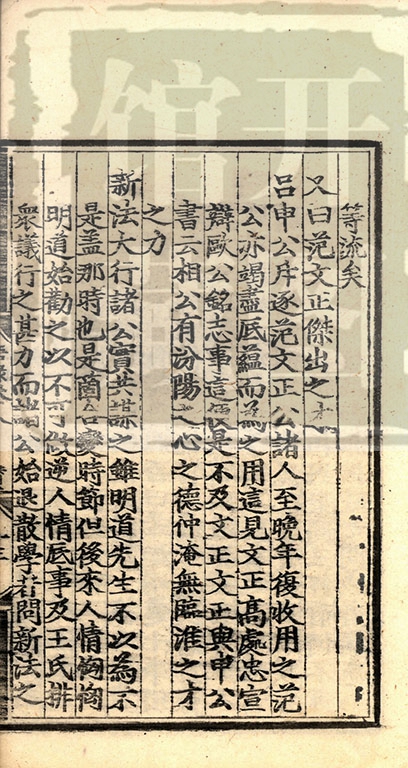 等流矣
又曰范文正傑出之才
呂申公斥逐范文正公諸人至晚年復收用之范
公亦竭盡底蘊而為之用這見文正高處忠宣
辯歐公銘志事這便是不及文正文正與申公
書云相公有汾陽之心之德仲淹無臨淮之才
之力
新法大行諸公實共謀之雖明道先生不以為不
是蓋那時也是合變時節但後來人情洶洶
明道始勸之以不可做逆人情底事及王氏排
衆議行之甚力而諸公始退散學者問新法之